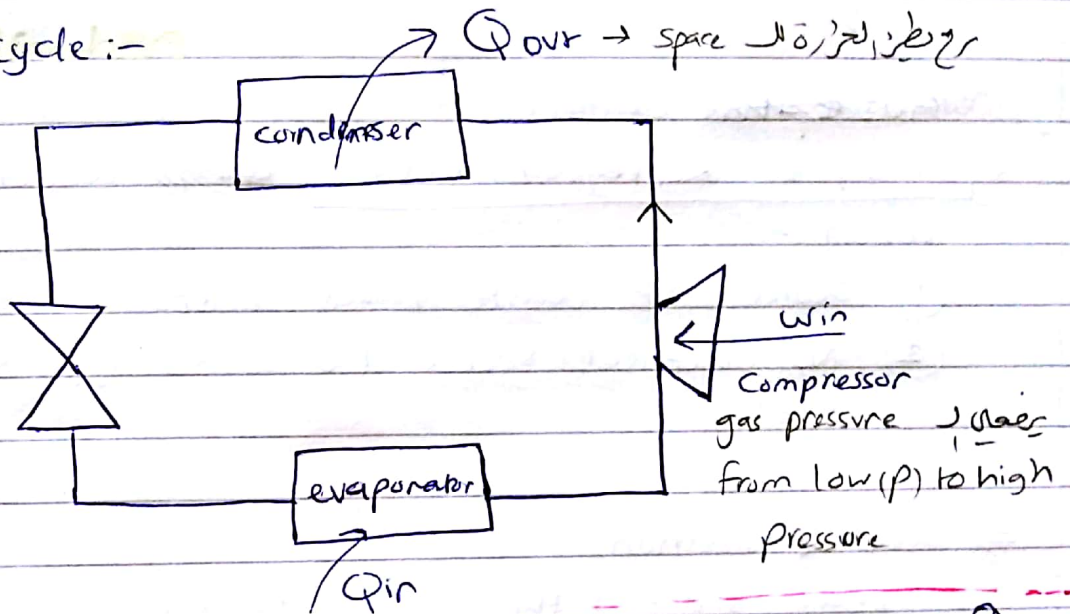 cycle :-
Qout → space رح يطرد الحرارة لل
condenser
Win
Compressor
gas pressure يضغط ال
from low (p) to high
pressure
evaporator
Qin